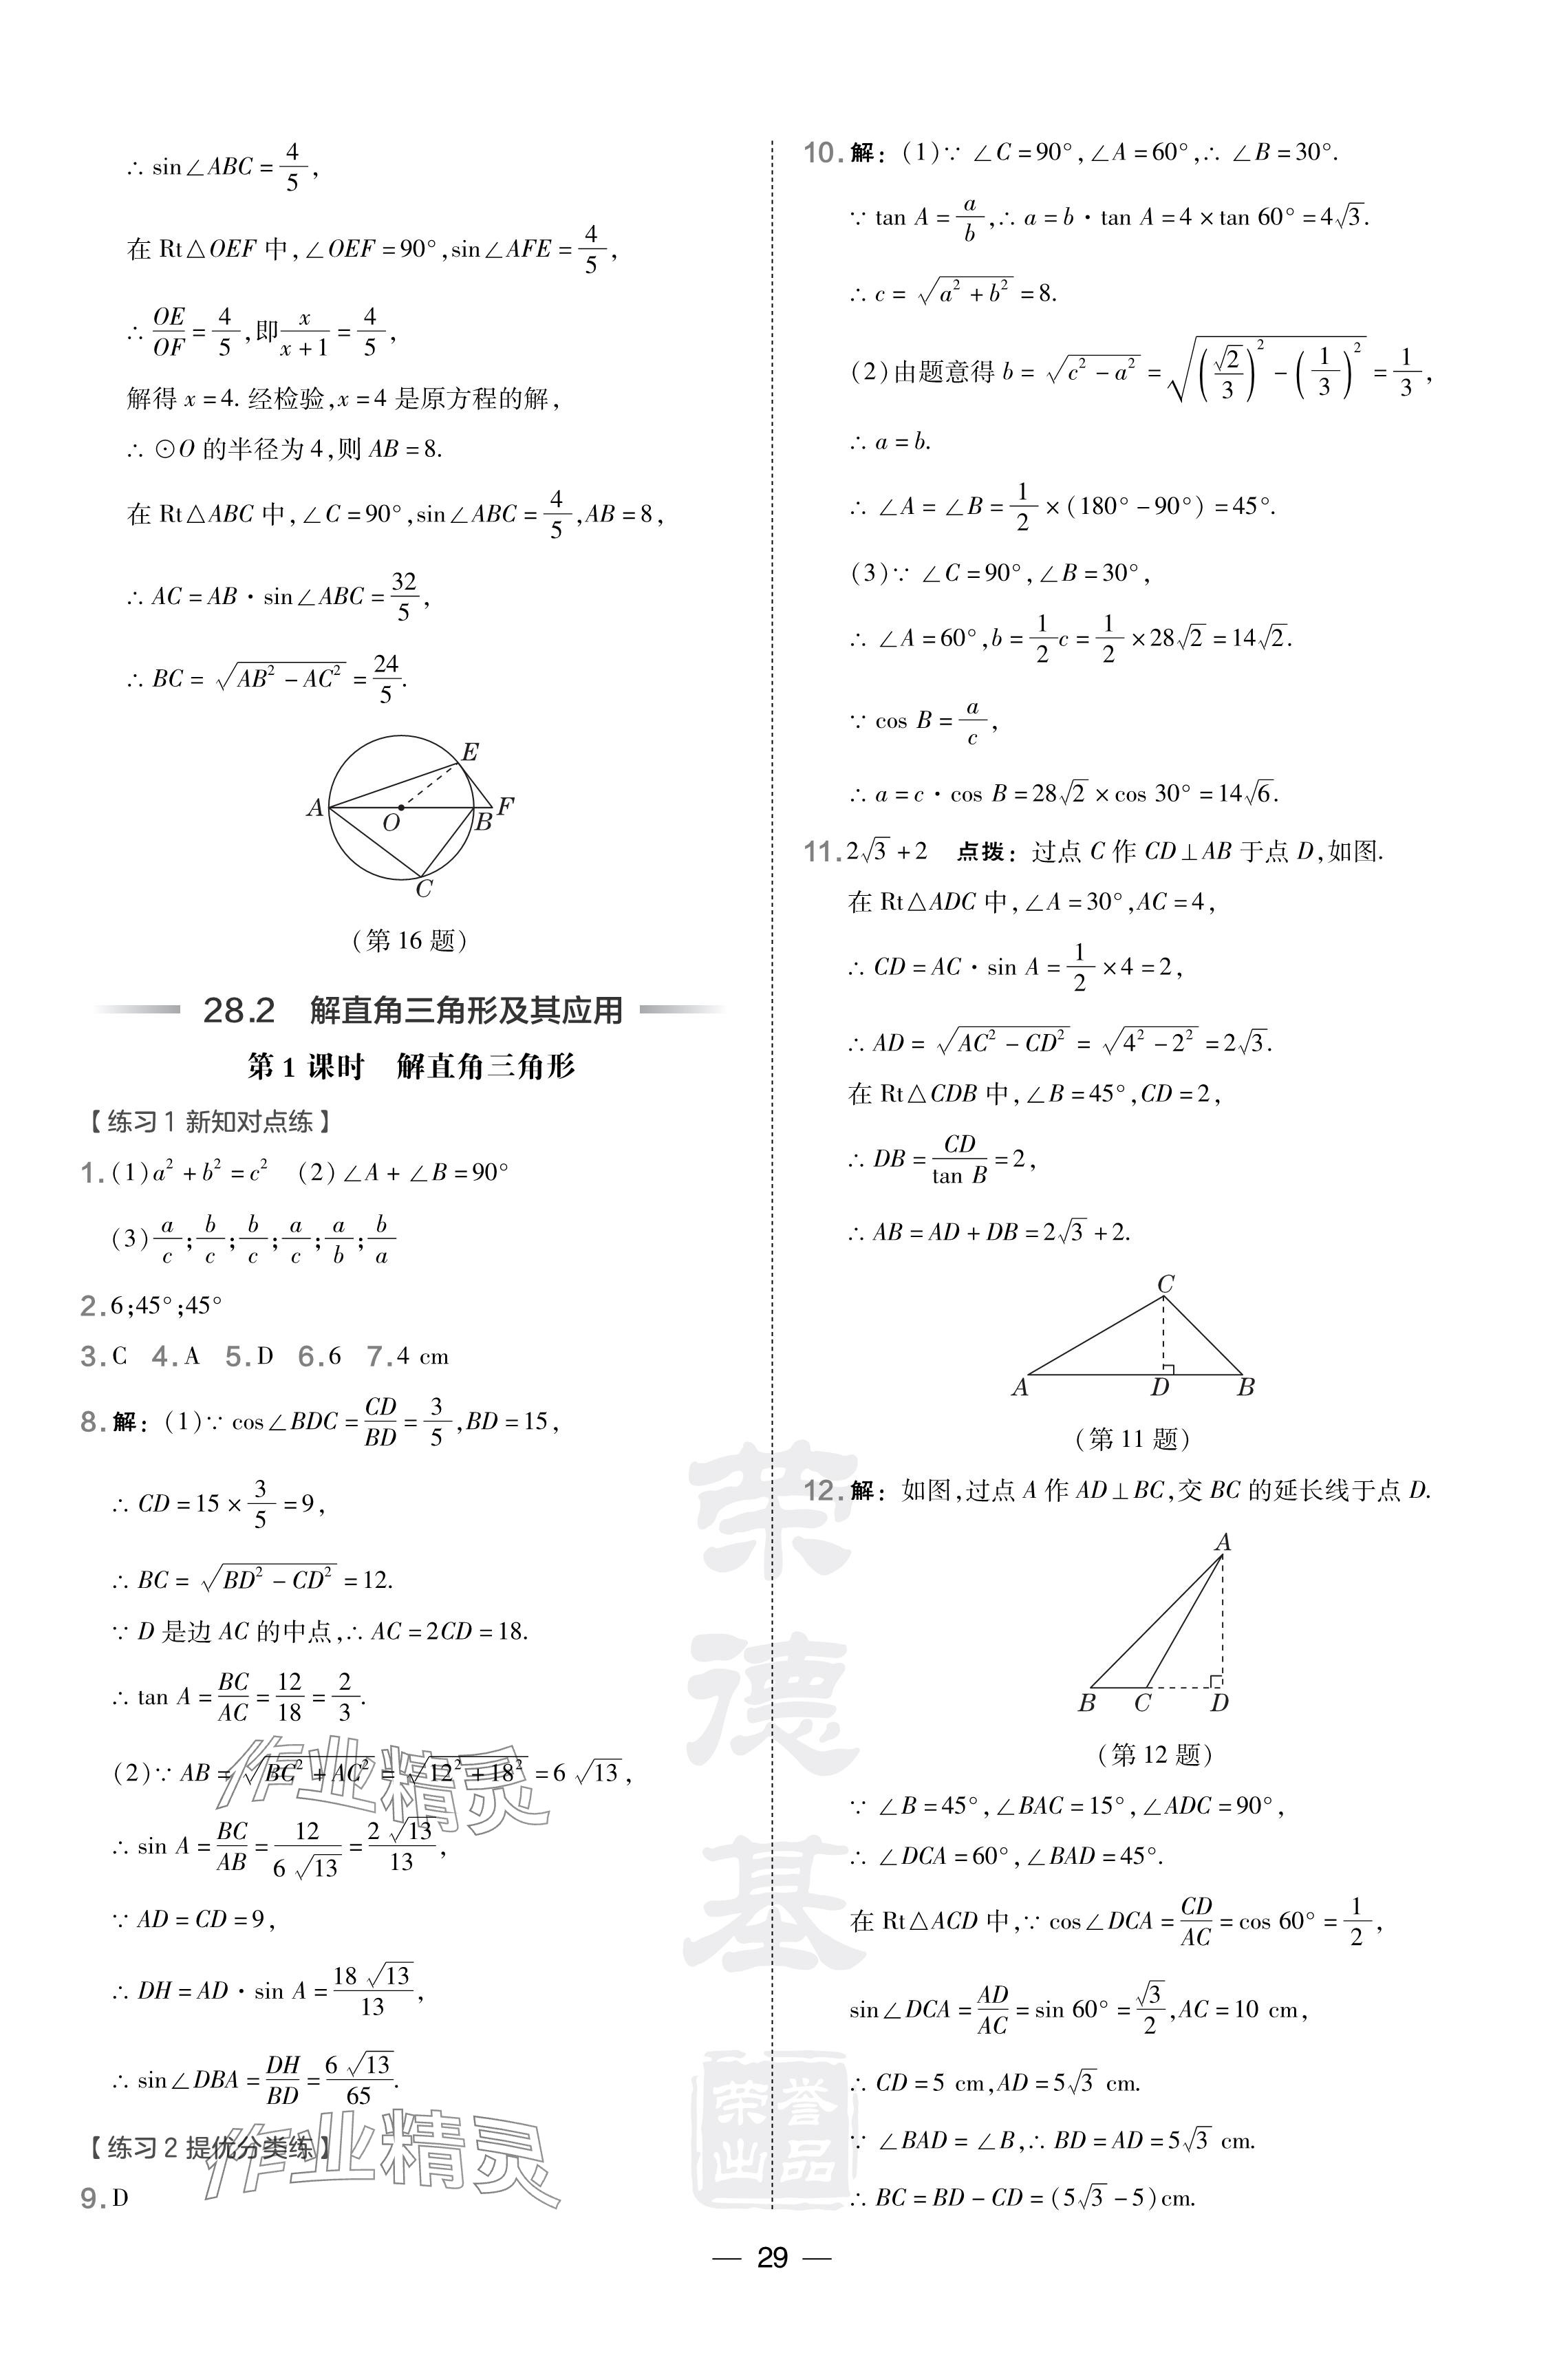 ∴ sin∠ABC = 4/5,
在 Rt△OEF 中,∠OEF = 90°,sin∠AFE = 4/5,
∴ OE/OF = 4/5,即 x/(x+1) = 4/5,
解得 x = 4. 经检验,x = 4 是原方程的解,
∴ ⊙O 的半径为 4,则 AB = 8.
在 Rt△ABC 中,∠C = 90°,sin∠ABC = 4/5,AB = 8,
∴ AC = AB · sin∠ABC = 32/5,
∴ BC = √(AB² − AC²) = 24/5.
E
A
O
B
F
C
(第 16 题)
28.2 解直角三角形及其应用
第 1 课时 解直角三角形
【练习 1 新知对点练】
1. (1)a² + b² = c² (2)∠A + ∠B = 90°
(3)a/c;b/c;b/c;a/c;a/b;b/a
2. 6;45°;45°
3. C 4. A 5. D 6. 6 7. 4 cm
8. 解:(1)∵ cos∠BDC = CD/BD = 3/5,BD = 15,
∴ CD = 15 × 3/5 = 9,
∴ BC = √(BD² − CD²) = 12.
∵ D 是边 AC 的中点,∴ AC = 2CD = 18.
∴ tan A = BC/AC = 12/18 = 2/3.
(2)∵ AB = √(BC² + AC²) = √(12² + 18²) = 6√13,
∴ sin A = BC/AB = 12/(6√13) = 2√13/13,
∵ AD = CD = 9,
∴ DH = AD · sin A = 18√13/13,
∴ sin∠DBA = DH/BD = 6√13/65.
【练习 2 提优分类练】
9. D
10. 解:(1)∵ ∠C = 90°,∠A = 60°,∴ ∠B = 30°.
∵ tan A = a/b,∴ a = b · tan A = 4 × tan 60° = 4√3.
∴ c = √(a² + b²) = 8.
(2)由题意得 b = √(c² − a²) = √((√2/3)² − (1/3)²) = 1/3,
∴ a = b.
∴ ∠A = ∠B = 1/2 × (180° − 90°) = 45°.
(3)∵ ∠C = 90°,∠B = 30°,
∴ ∠A = 60°,b = 1/2 c = 1/2 × 28√2 = 14√2.
∵ cos B = a/c,
∴ a = c · cos B = 28√2 × cos 30° = 14√6.
11. 2√3 + 2 点拨:过点 C 作 CD⊥AB 于点 D,如图.
在 Rt△ADC 中,∠A = 30°,AC = 4,
∴ CD = AC · sin A = 1/2 × 4 = 2,
∴ AD = √(AC² − CD²) = √(4² − 2²) = 2√3.
在 Rt△CDB 中,∠B = 45°,CD = 2,
∴ DB = CD/tan B = 2,
∴ AB = AD + DB = 2√3 + 2.
C
A
D
B
(第 11 题)
12. 解:如图,过点 A 作 AD⊥BC,交 BC 的延长线于点 D.
A
B
C
D
(第 12 题)
∵ ∠B = 45°,∠BAC = 15°,∠ADC = 90°,
∴ ∠DCA = 60°,∠BAD = 45°.
在 Rt△ACD 中,∵ cos∠DCA = CD/AC = cos 60° = 1/2,
sin∠DCA = AD/AC = sin 60° = √3/2,AC = 10 cm,
∴ CD = 5 cm,AD = 5√3 cm.
∵ ∠BAD = ∠B,∴ BD = AD = 5√3 cm.
∴ BC = BD − CD = (5√3 − 5)cm.
荣德基
荣誉出品
作业精灵
作业精灵
— 29 —